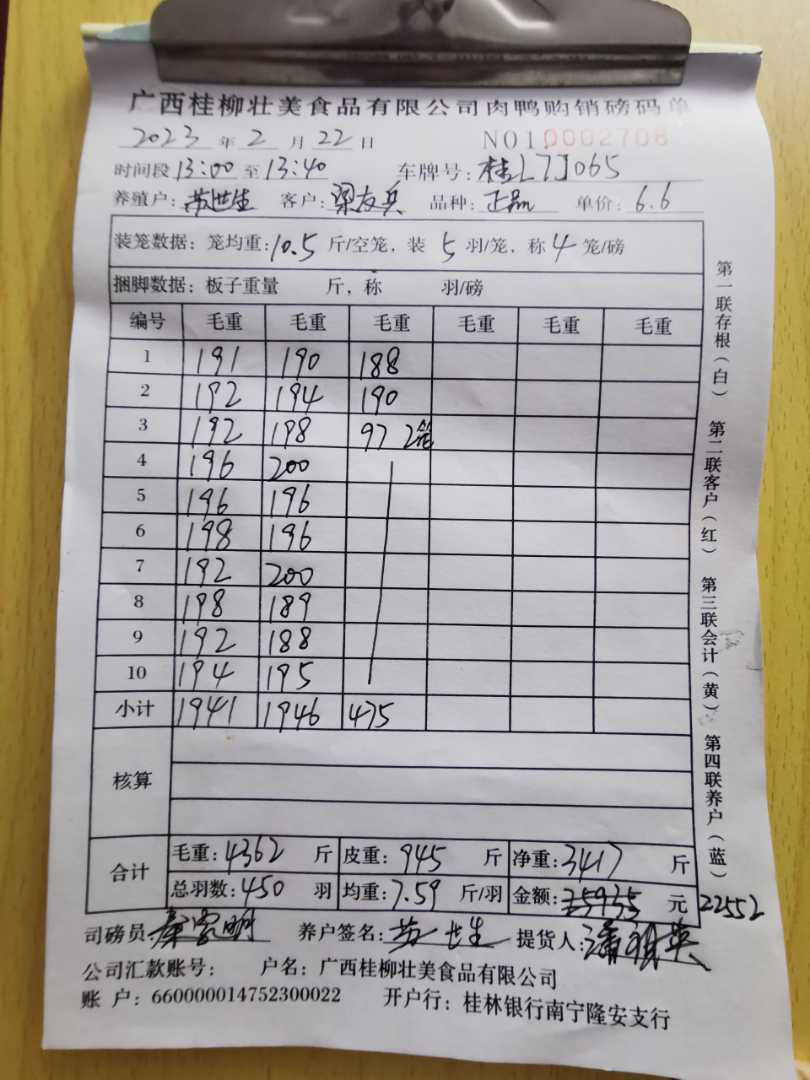 广西桂柳壮美食品有限公司肉鸭购销磅码单
2023 年 2 月 22 日 NO10002708
时间段 13:00 至 13:40 车牌号: 桂L7J065
养殖户: 苏世生 客户: 梁友兵 品种: 正品 单价: 6.6
装笼数据: 笼均重: 10.5 斤/空笼, 装 5 羽/笼, 称 4 笼/磅
捆脚数据: 板子重量 斤, 称 羽/磅
编号 毛重 毛重 毛重 毛重 毛重 毛重
1 191 190 188
2 192 194 190
3 192 198 97 2笼
4 196 200
5 196 196
6 198 196
7 192 200
8 198 189
9 192 188
10 194 195
小计 1941 1946 475
核算
合计 毛重: 4362 斤 皮重: 945 斤 净重: 3417 斤
总羽数: 450 羽 均重: 7.59 斤/羽 金额: 元 22552
司磅员: 养户签名: 苏世生 提货人:
公司汇款账号: 户名: 广西桂柳壮美食品有限公司
账 户: 660000014752300022 开户行: 桂林银行南宁隆安支行
第一联存根(白) 第二联客户(红) 第三联会计(黄) 第四联养户(蓝)